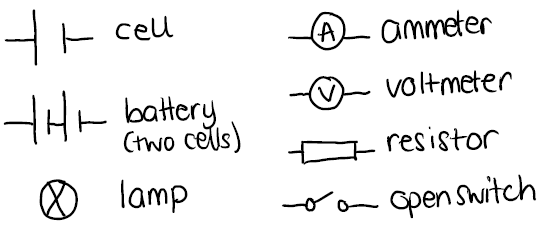 cell
battery
(two cells)
lamp
A ammeter
V voltmeter
resistor
open switch